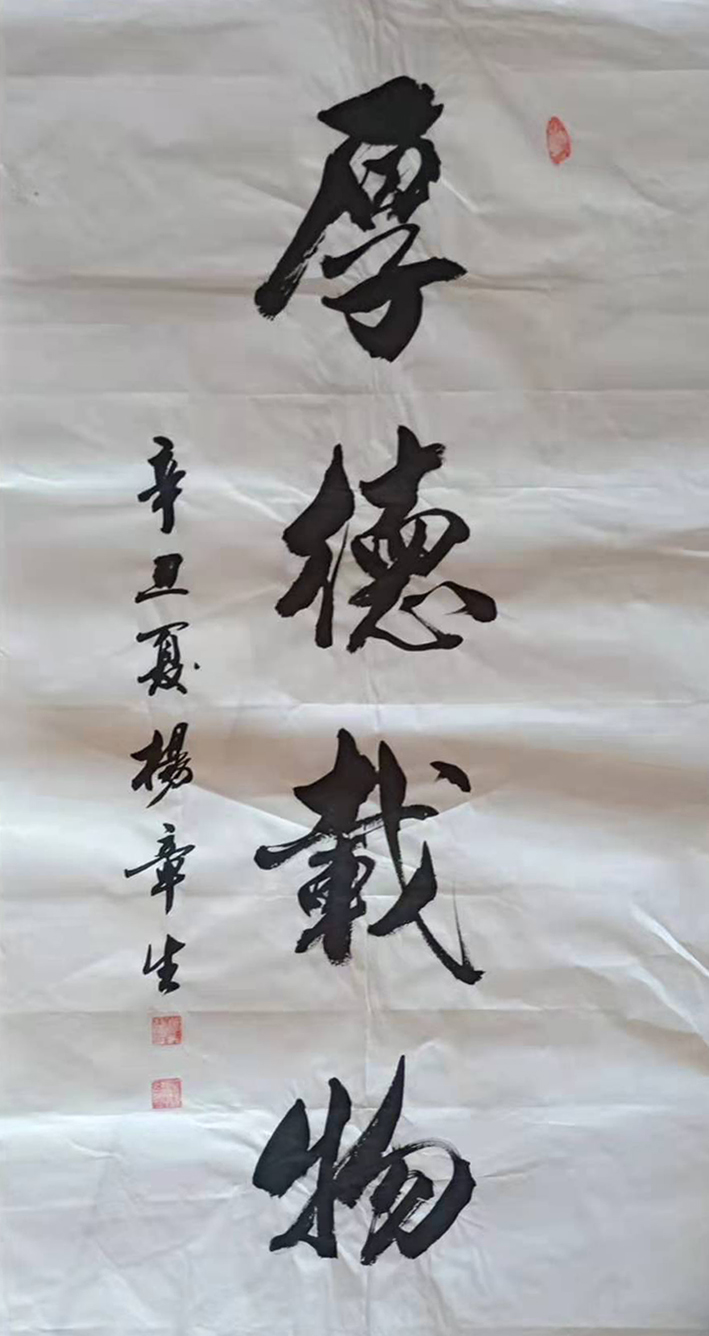 厚德載物
辛丑夏楊章生